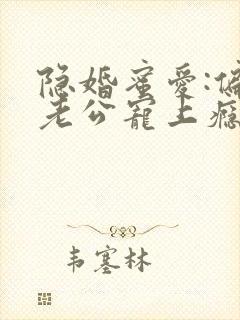 隐婚蜜爱:偏
老公寵上瘾
韦塞林